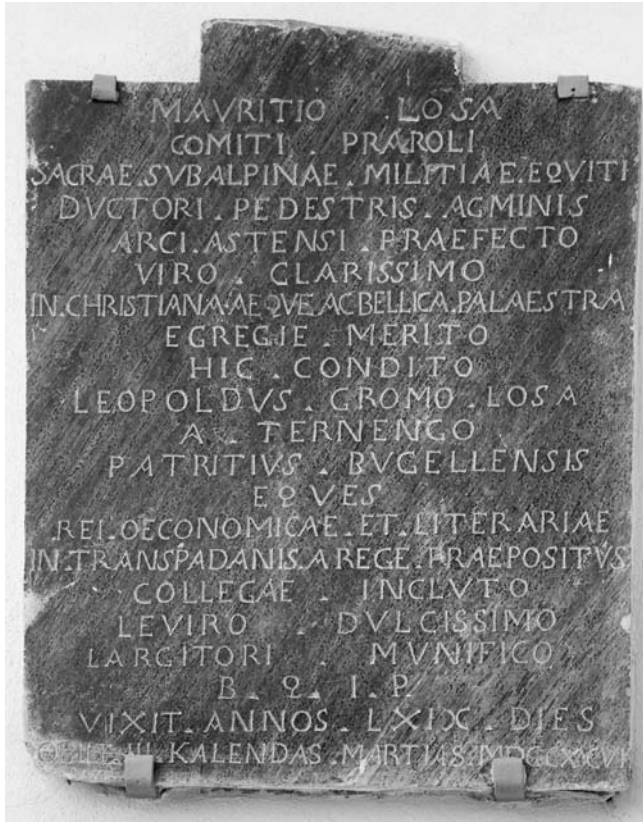 MAVRITIO LOSA
COMITI . PRAROLI
SACRAE . SVBALPINAE . MILITIAE . EQVITI
DVCTORI . PEDESTRIS . AGMINIS
ARCI . ASTENSI . PRAEFECTO
VIRO . CLARISSIMO
IN . CHRISTIANA . AEQVE AC BELLICA . PALAESTRA
EGREGIE . MERITO
HIC . CONDITO
LEOPOLDVS . GROMO . LOSA
A . TERNENGO
PATRITIVS . BVGELLENSIS
EQVES
REI . OECONOMICAE . ET . LITERARIAE
IN . TRANSPADANIS . A REGE . PRAEPOSITVS
COLLEGAE . INCLVTO
LEVIRO . DVLCISSIMO
LARGITORI . MVNIFICO
B . Q . I . P
VIXIT . ANNOS . LXIX . DIES
III . KALENDAS . MARTIAS